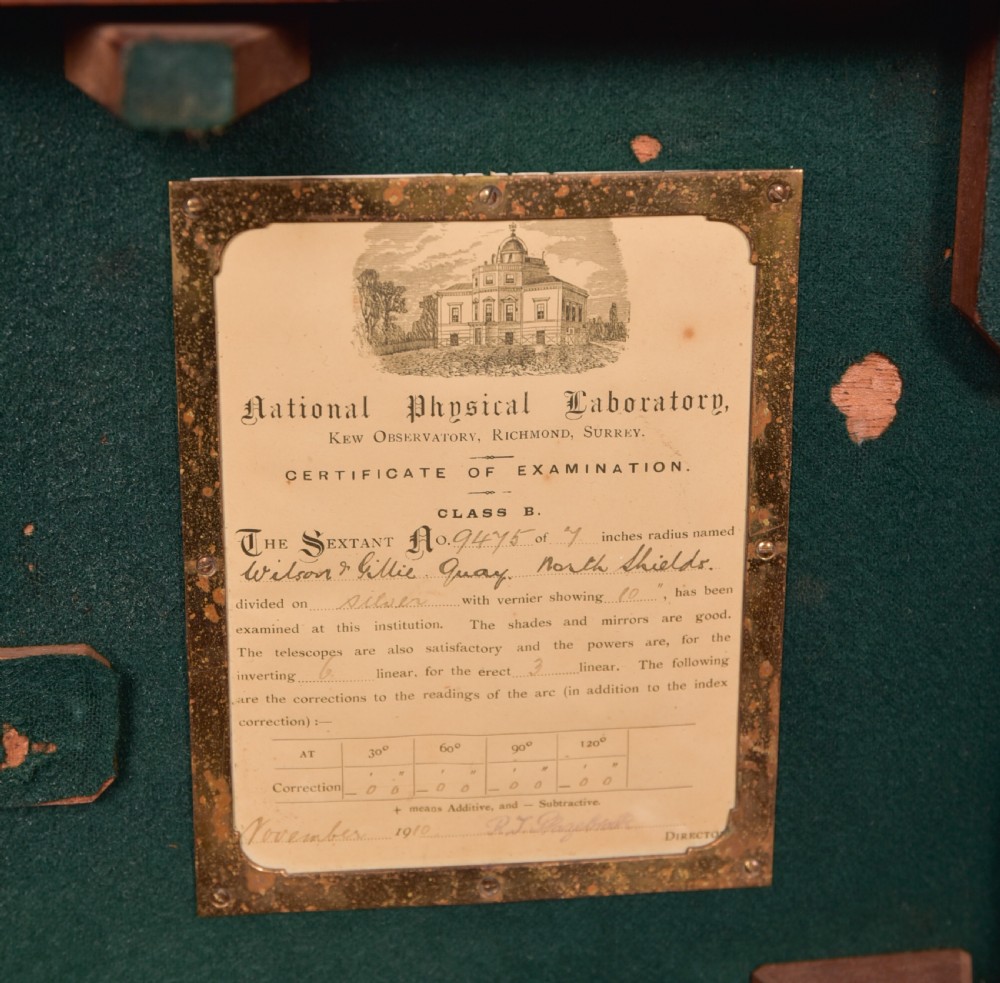 National Physical Laboratory,
KEW OBSERVATORY, RICHMOND, SURREY.
CERTIFICATE OF EXAMINATION.
CLASS B.
THE SEXTANT No. 9475 of 7 inches radius named
Wilson & Gillie Quay. North Shields.
divided on silver with vernier showing 10", has been
examined at this institution. The shades and mirrors are good.
The telescopes are also satisfactory and the powers are, for the
inverting 6 linear, for the erect 3 linear. The following
are the corrections to the readings of the arc (in addition to the index
correction) :—
AT 30° 60° 90° 120°
Correction – 0' 0" – 0' 0" – 0' 0" – 0' 0"
+ means Additive, and — Subtractive.
November 1910 R.T. DIRECTO